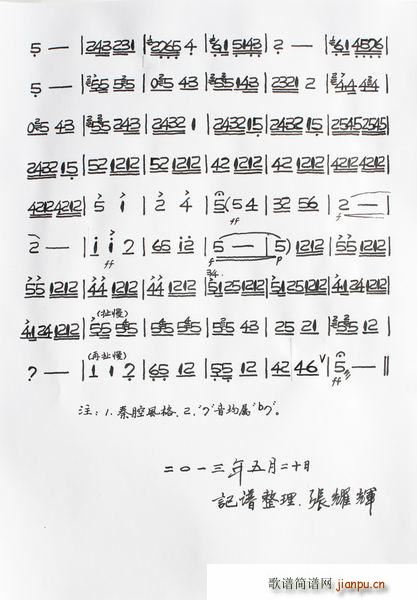 5 — | 243231 | 2265 4 | 61 5143 | 2 — | 61 4526
5 — | 55 55 | 05 43 | 55143 | 2321 2 | 44 44
05 43 | 55 243 | 2432 1 | 2432 15 | 2432 15 | 25452545
2432 15 | 52 1212 | 52 1212 | 42 1212 | 42 1212 | 4212 4212
4212 4212 | 5 i | 2 4 | 5 (5 4 | 32 56 | 2 —
ff f
2 — | i i 2 | 65 i2 | 5 — | 5) 1212 | 55 1212
ff f p
55 1212 | 44 1212 | 44 1212 | 51 251212 | 51 251212 | 41 241212
(扯慢)
41 241212 | 55 55 | 55 55 | 55 43 | 25 21 | 55 12
(再扯慢)
? — | 1 1 2 | 65 12 | 55 12 | 42 46 ∨ | 5 — ‖
ff
注: 1. 秦腔風格. 2. "7"音均属"b7"。
二〇一三年五月二十日
記谱整理. 張耀輝
歌谱简谱网
jianpu.cn